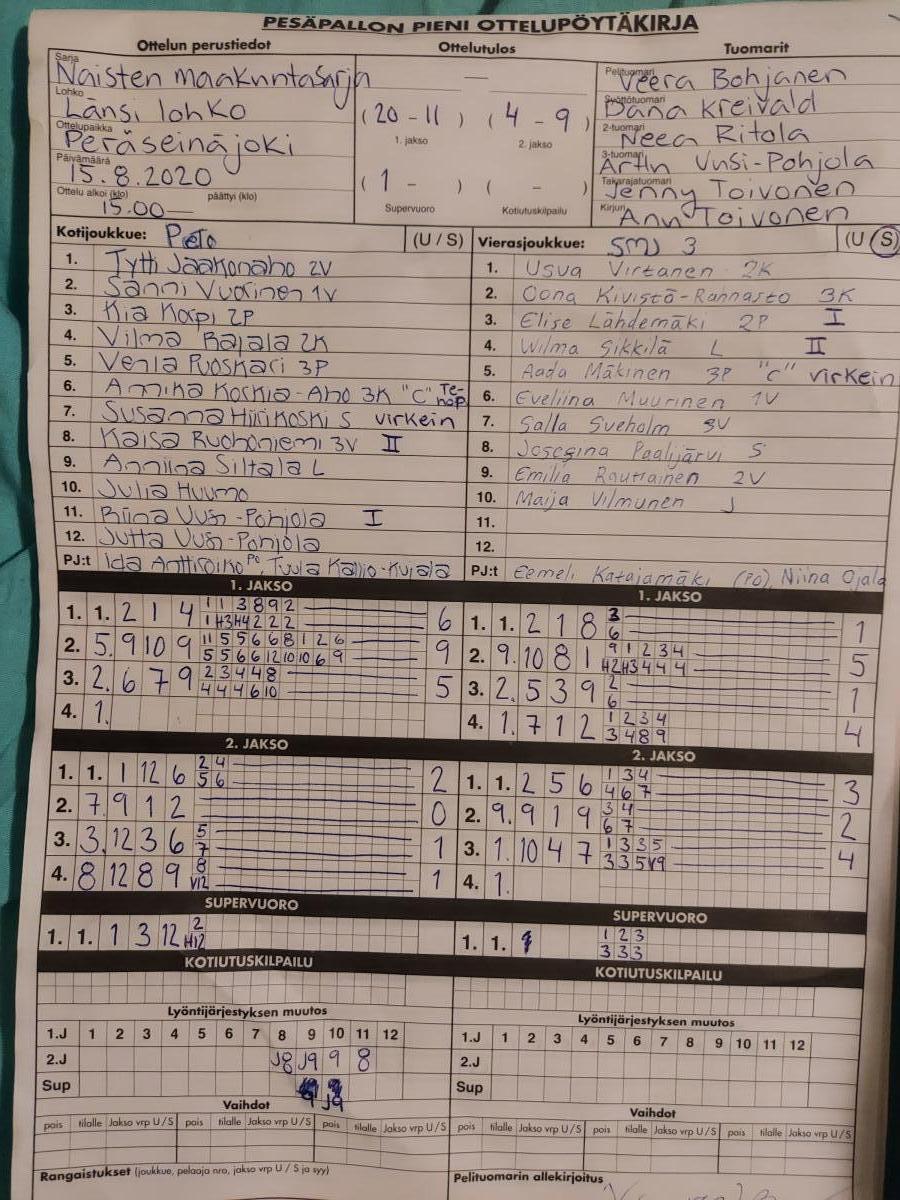 PESÄPALLON PIENI OTTELUPÖYTÄKIRJA
Ottelun perustiedot
Ottelutulos
Tuomarit
Sarja
Naisten maakuntasarja
Lohko
Länsi lohko
Ottelupaikka
Peräseinäjoki
Päivämäärä
15.8.2020
Ottelu alkoi (klo) päättyi (klo)
15.00
—
(20 - 11) (4 - 9)
1. jakso 2. jakso
(1 - ) ( - )
Supervuoro Kotiutuskilpailu
Pelituomari
Veera Bohjanen
Syöttötuomari
Dana Kreivald
2-tuomari
Neea Ritola
3-tuomari
Uusi-Pohjola
Takarajatuomari
Jenny Toivonen
Kirjuri
Toivonen
Kotijoukkue: (U / S)
1. Tytti Jaakonaho 2V
2. Sanni Vuorinen 1V
3. Kia Karpi 2P
4. Vilma Rajala 2K
5. Venla Puoskari 3P
6. Annika Koskia-Aho 3K "C"
7. Susanna Hirikoski S virkein
8. Kaisa Ruohoniemi 3V II
9. Anniina Siltala L
10. Julia Huumo
11. Riina Uusi-Pohjola I
12. Jutta Uusi-Pohjola
PJ:t Ida Anttiroiko PO, Tuula Kallio-Kujala
Vierasjoukkue: SMJ 3 (U / S)
1. Usva Virtanen 2K
2. Oona Kivistö-Rahnasto 3K
3. Elise Lähdemäki 2P I
4. Wilma Sikkilä L II
5. Aada Mäkinen 3P "C" virkein
6. Eveliina Muurinen 1V
7. Salla Sveholm 3V
8. Paalijärvi S
9. Emilia Rautiainen 2V
10. Maija Vilmunen J
11.
12.
PJ:t Eemeli Katajamäki (PO), Niina Ojala
1. JAKSO
1. 1. 2 1 4 1 1 3 8 9 2 6
1 H3 H4 2 2 2
2. 5. 9 10 9 11 5 5 6 6 8 1 2 6 9
5 5 6 6 12 10 10 6 9
3. 2. 6 7 9 2 3 4 4 8 5
4 4 4 6 10
4. 1.
1. JAKSO
1. 1. 2 1 8 3 1
6
2. 9. 10 8 1 9 1 2 3 4 5
H2 H3 4 4 4
3. 2. 5 3 9 2 1
6
4. 1. 7 1 2 1 2 3 4 4
3 4 8 9
2. JAKSO
1. 1. 1 12 6 2 4 2
5 6
2. 7. 9 1 2 0
3. 3. 12 3 6 5 1
7
4. 8 12 8 9 8 1
V12
2. JAKSO
1. 1. 2 5 6 1 3 4 3
4 6 7
2. 9. 9 1 9 3 4 2
6 7
3. 1. 10 4 7 1 3 3 5 4
3 3 5 V9
4. 1.
SUPERVUORO
1. 1. 1 3 12 2
H12
SUPERVUORO
1. 1. 1 2 3
3 3 3
KOTIUTUSKILPAILU
KOTIUTUSKILPAILU
Lyöntijärjestyksen muutos
1.J 1 2 3 4 5 6 7 8 9 10 11 12
2.J J8 J9 9 8
Sup 9 J9
Lyöntijärjestyksen muutos
1.J 1 2 3 4 5 6 7 8 9 10 11 12
2.J
Sup
Vaihdot
pois tilalle Jakso vrp U/S pois tilalle Jakso vrp U/S pois tilalle Jakso vrp U/S
Vaihdot
pois tilalle Jakso vrp U/S pois tilalle Jakso vrp U/S pois tilalle Jakso vrp U/S
Rangaistukset (joukkue, pelaaja nro, jakso vrp U / S ja syy)
Pelituomarin allekirjoitus